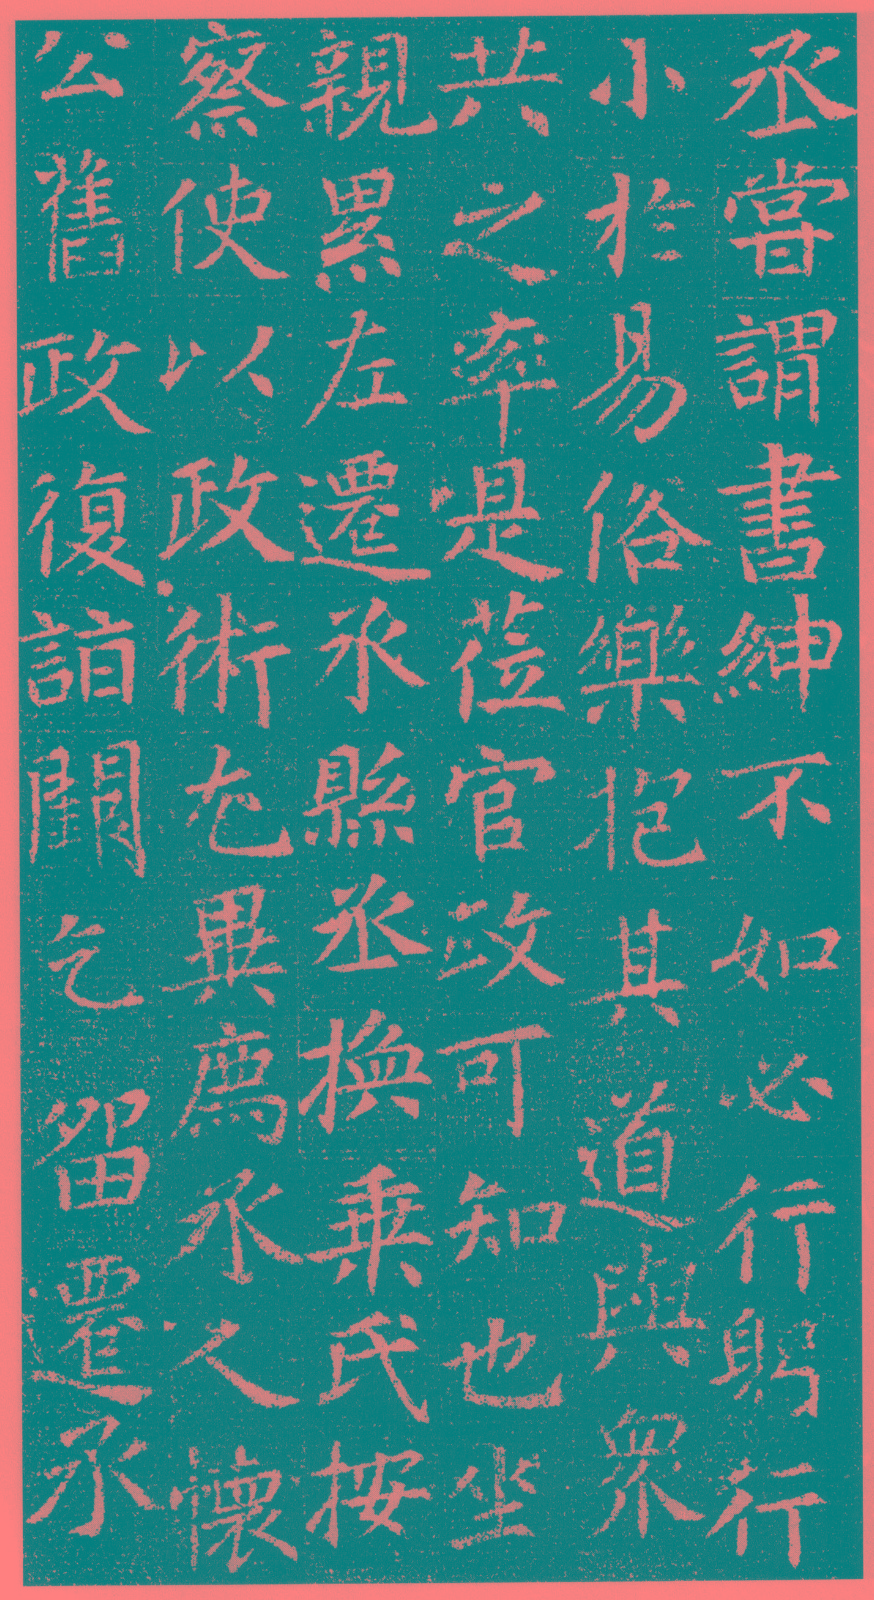 丞嘗謂書紳不如必行躬行
小於易俗樂抱其道與衆
共之率是莅官政可知也坐
親累左遷承縣丞換乗氏按
察使以政術尤異廌承人懷
公舊政復詣闕乞留還承